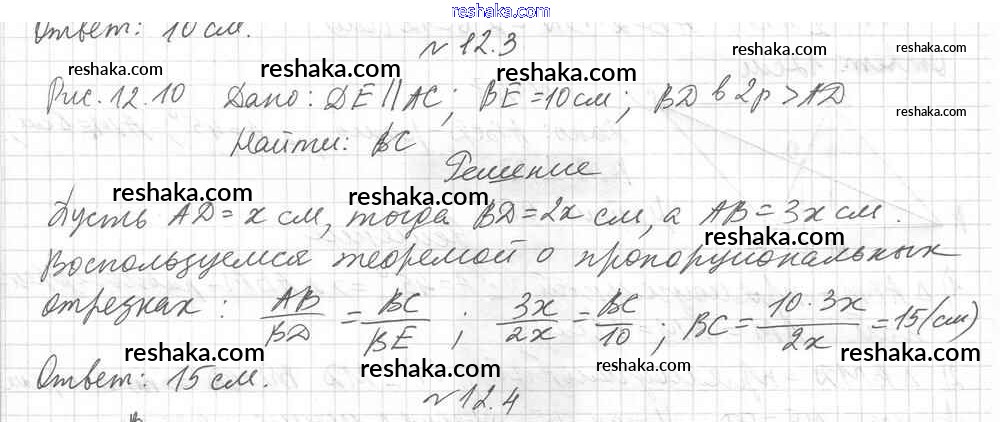 reshaka.com
Ответ: 10 см.
№ 12.3
reshaka.com reshaka.com reshaka.com reshaka.com
Рис. 12.10 Дано: DE || AC; BE = 10 см; BD в 2р > AD
reshaka.com
Найти: BC
Решение
reshaka.com reshaka.com reshaka.com
Пусть AD = x см, тогда BD = 2x см, а AB = 3x см.
reshaka.com
Воспользуемся теоремой о пропорциональных
отрезках: AB/BD = BC/BE; 3x/2x = BC/10; BC = 10·3x/2x = 15 (см)
reshaka.com reshaka.com reshaka.com reshaka.com
Ответ: 15 см.
№ 12.4